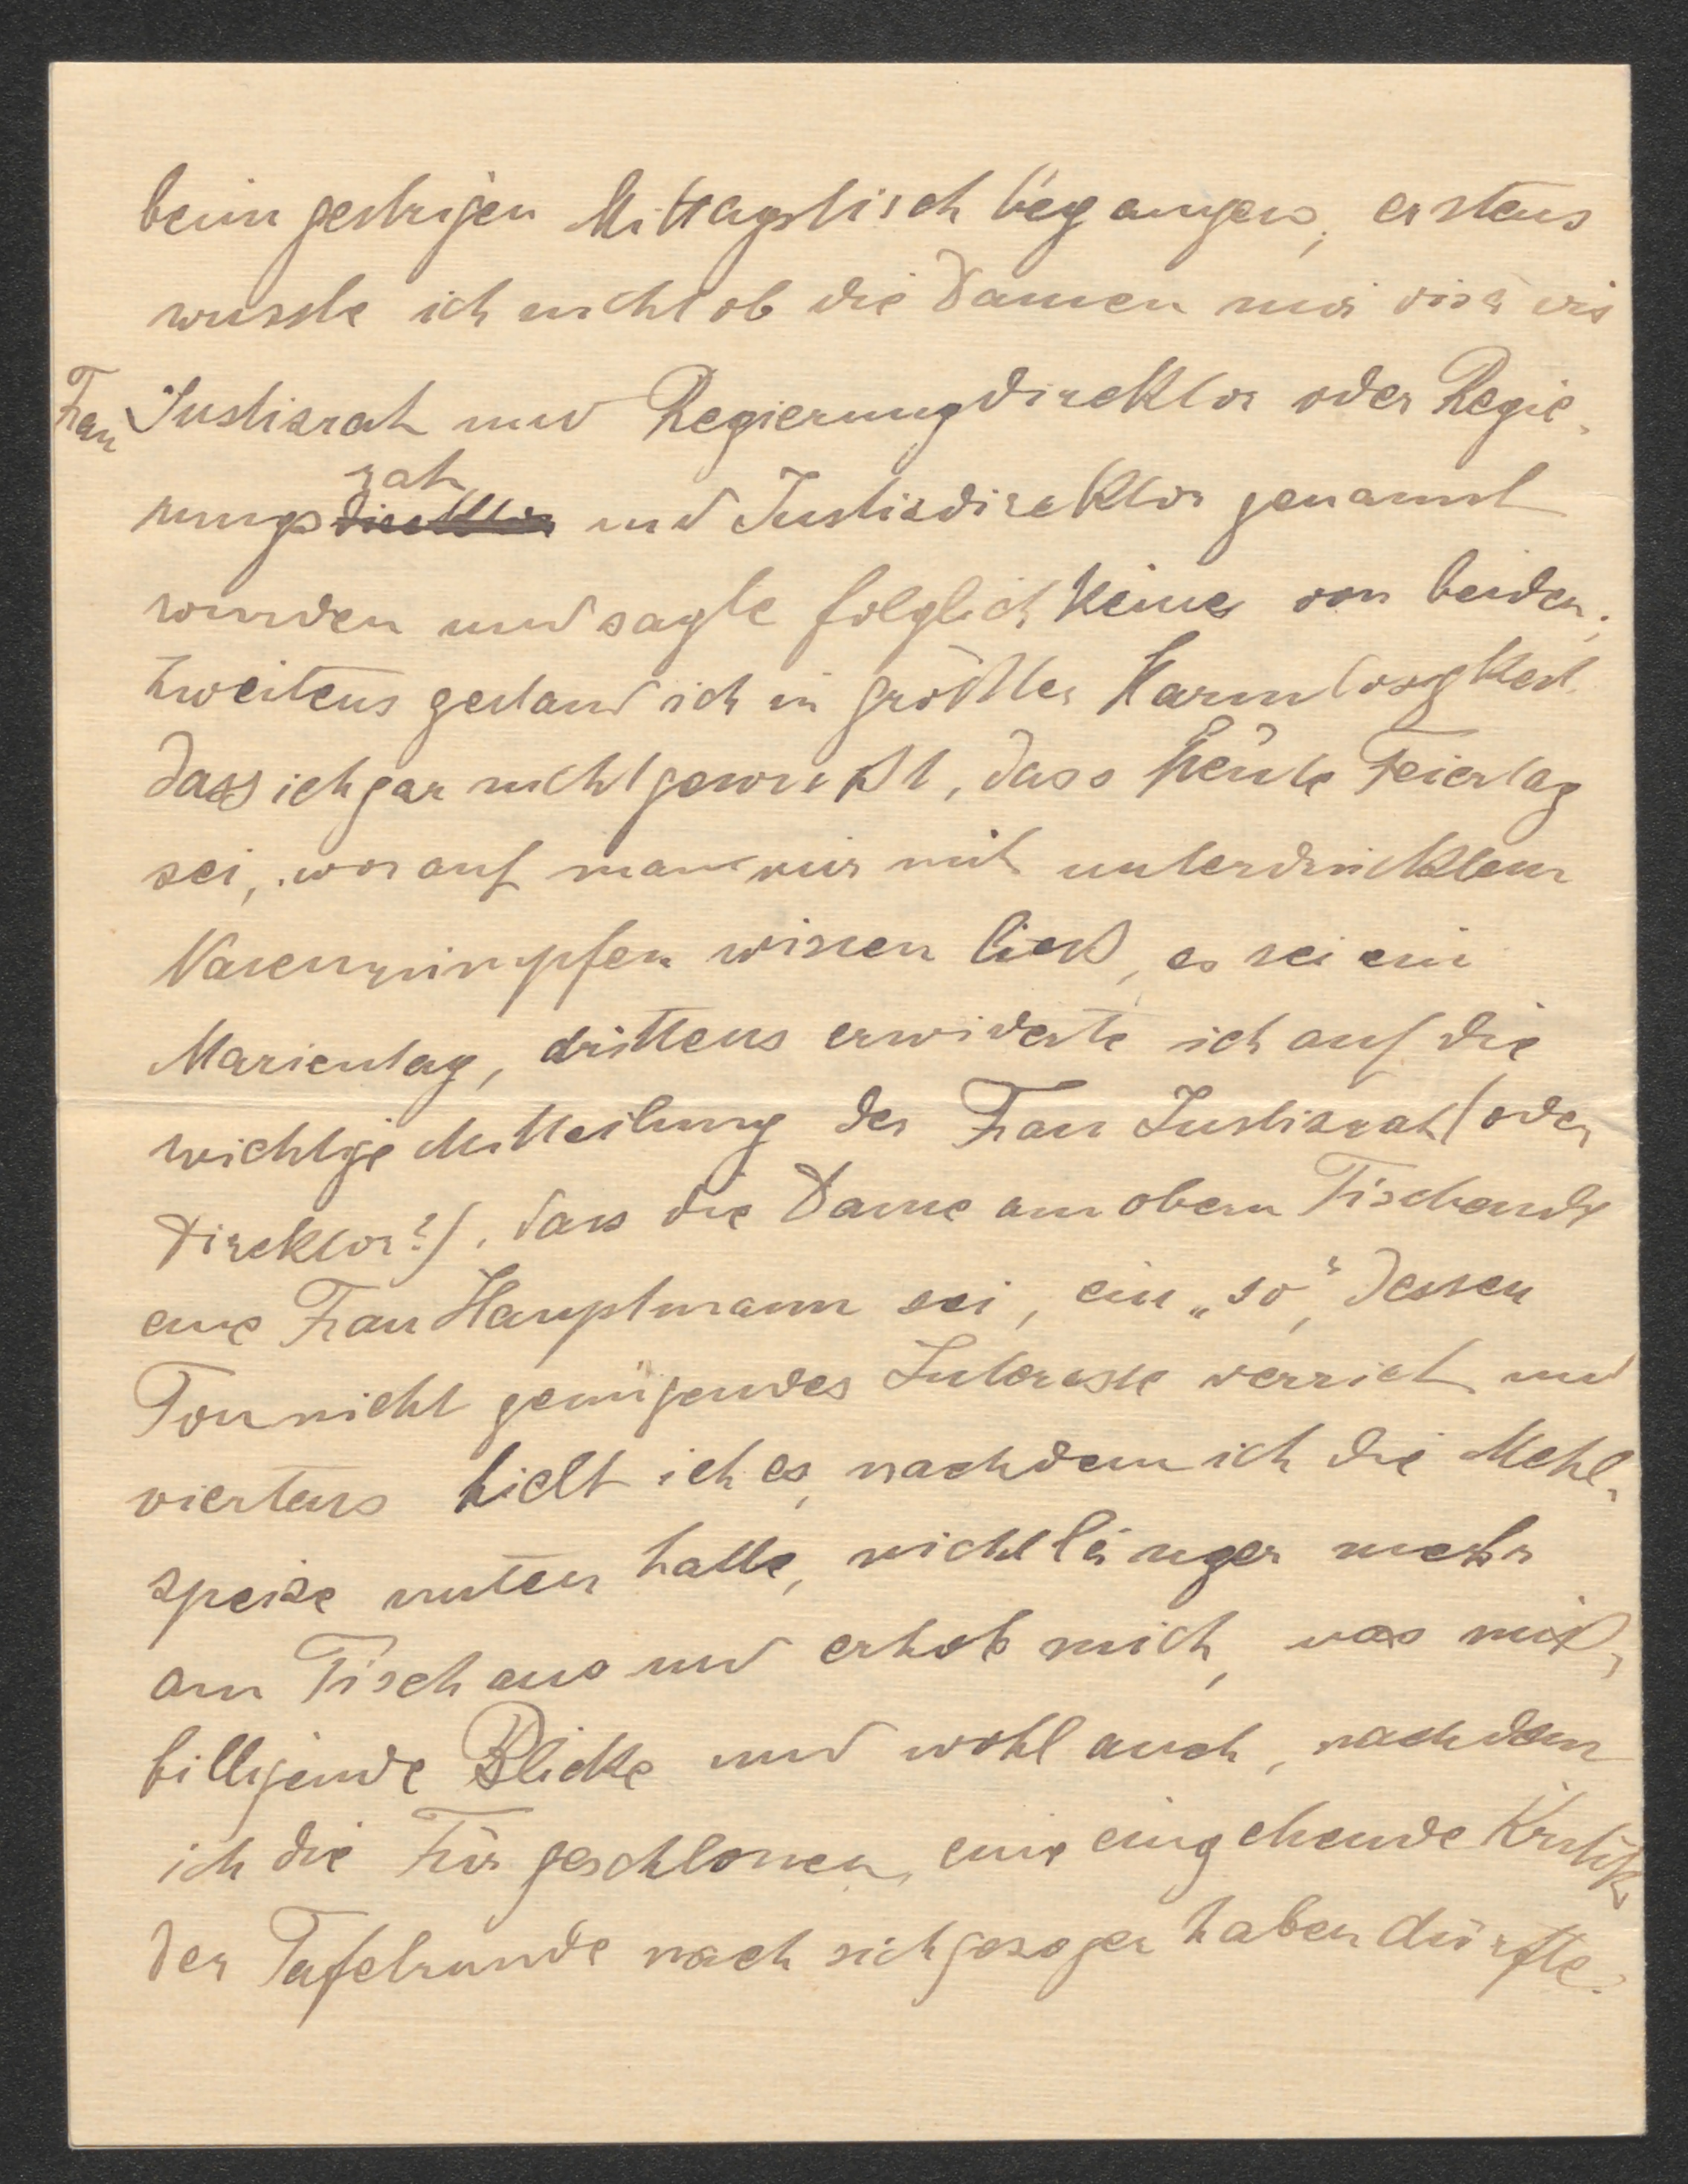 beim gestrigen Mittagstisch begangen; erstens
wusste ich nicht ob die Damen mir vis à vis
Frau Justizrat und Regierungdirektor oder Regie-
rat
rungsdirektor und Justizdirektor genannt
wurden und sagte folglich keines von beiden;
zweitens gestand ich in größter Harmlosigkeit
dass ich gar nicht gewußt, dass heute Feiertag
sei, worauf man mir mit unterdrücktem
Nasenrümpfen wissen ließ, es sei ein
Marientag, drittens erwiderte ich auf die
wichtige Mitteilung der Frau Justizrat (oder
Direktor?), dass die Dame am obern Tischende
eine Frau Hauptmann sei, ein „so“, dessen
Ton nicht genügendes Interesse verriet und
viertens hielt ich es, nachdem ich die Mehl-
speise unten hatte, nicht länger mehr
am Tisch aus und erhob mich, was miß-
billigende Blicke und wohl auch, nachdem
ich die Tür geschlossen, eine eingehende Kritik
der Tafelrunde nach sich gezogen haben dürfte.